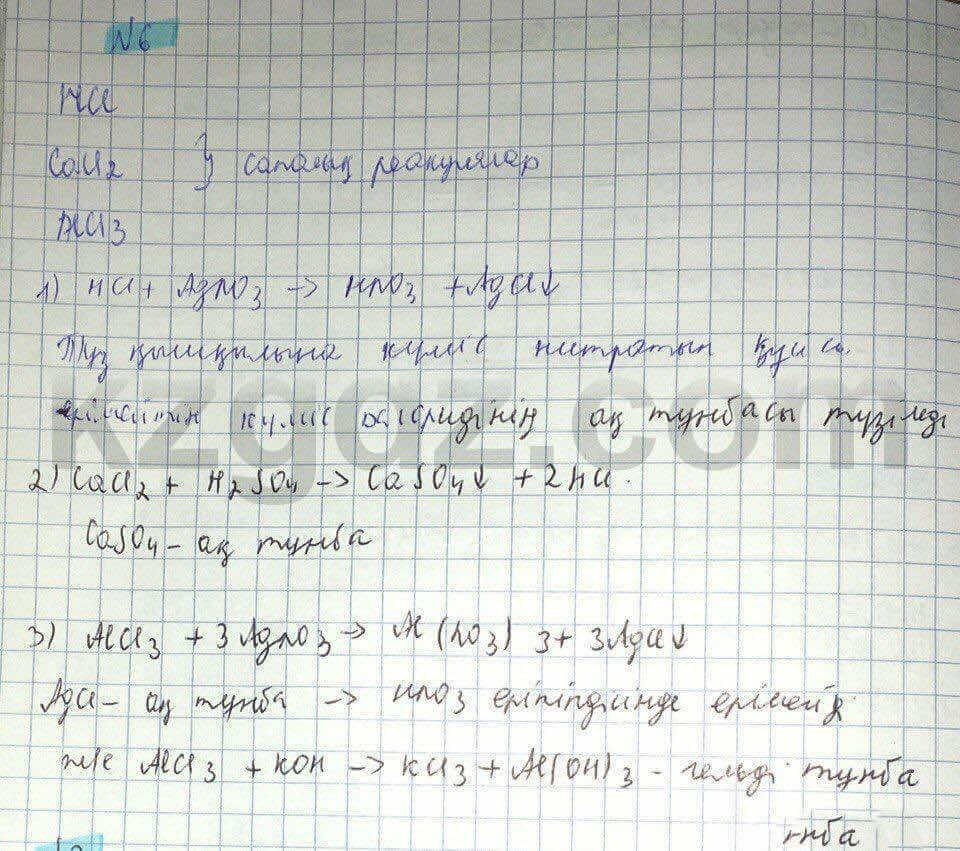 №6
HCl
CaCl2 } сапалық реакциялар
AlCl3
1) HCl + AgNO3 -> HNO3 + AgCl↓
Тұз қышқылына күміс нитратын құйса
ерімейтін күміс хлоридінің ақ тұнбасы түзіледі
kzgdz.com
2) CaCl2 + H2SO4 -> CaSO4↓ + 2HCl.
CaSO4 - ақ тұнба
3) AlCl3 + 3AgNO3 -> Al(NO3)3 + 3AgCl↓
AgCl - ақ тұнба -> HNO3 ерітіндісінде ерімейді
AlCl3 + KOH -> KCl3 + Al(OH)3 - гельді тұнба
нба